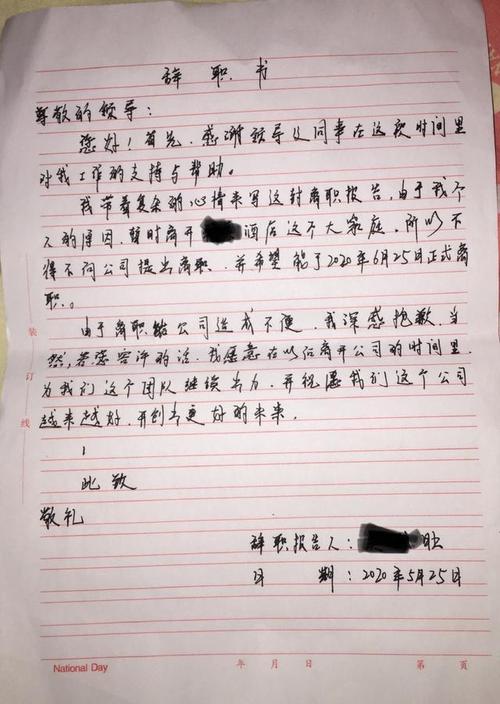 辞职书
尊敬的领导：
您好！首先，感谢领导及同事在这段时间里
对我工作的支持与帮助。
我带着复杂的心情来写这封离职报告，由于我个
人的原因，暂时离开酒店这个大家庭。所以不
得不向公司提出离职，并希望能于2020年6月25日正式离
职。
由于离职给公司造成不便，我深感抱歉，当
然，若您容许的话，我愿意在以后离开公司的时间里
为我们这个团队继续出力，并祝愿我们这个公司
越来越好，开创出更好的未来。
此致
敬礼
辞职报告人：旺
日期：2020年5月25日
装订线
National Day 年 月 日 第 页